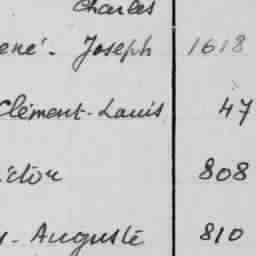 Charles
ené. Joseph 1618
Clément-Louis 47
ictor 808
Auguste 810